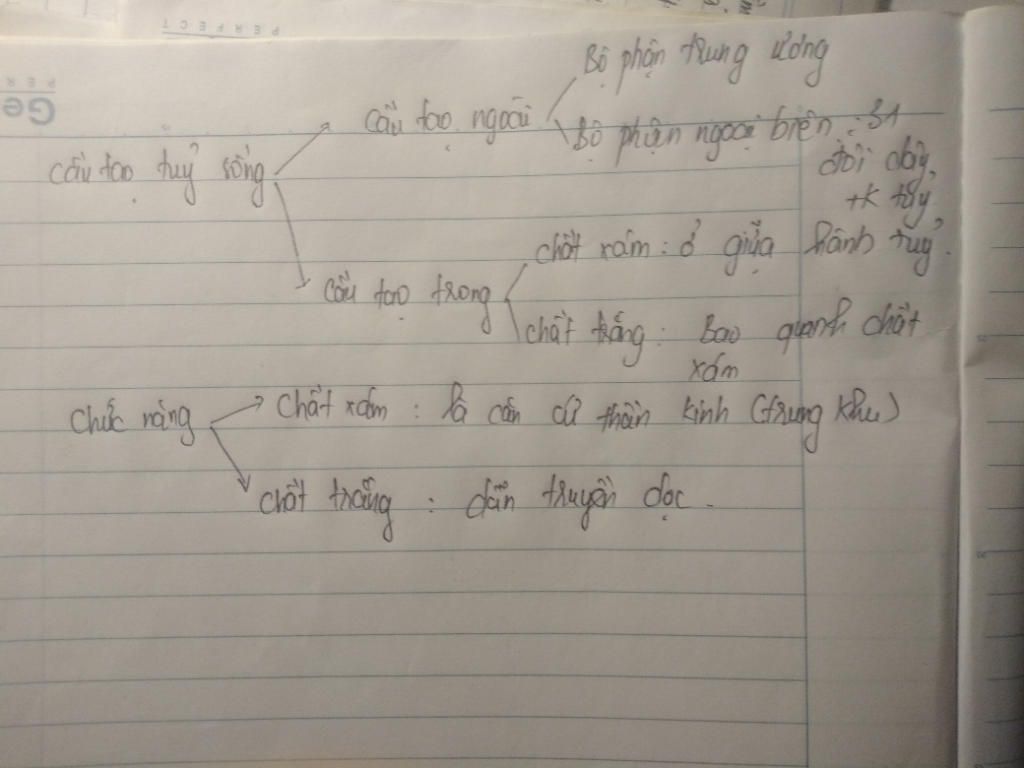 PERFECT
Ge
Bộ phận trung ương
Cấu tạo ngoài
Bộ phận ngoại biên : 31
đôi dây,
+K tủy
Cấu tạo tuỷ sống
chất xám : ở giữa hành tuỷ.
Cấu tạo trong
chất trắng : Bao quanh chất
xám
Chức năng
Chất xám : là căn cứ thần kinh (trung khu)
chất trắng : dẫn truyền dọc.